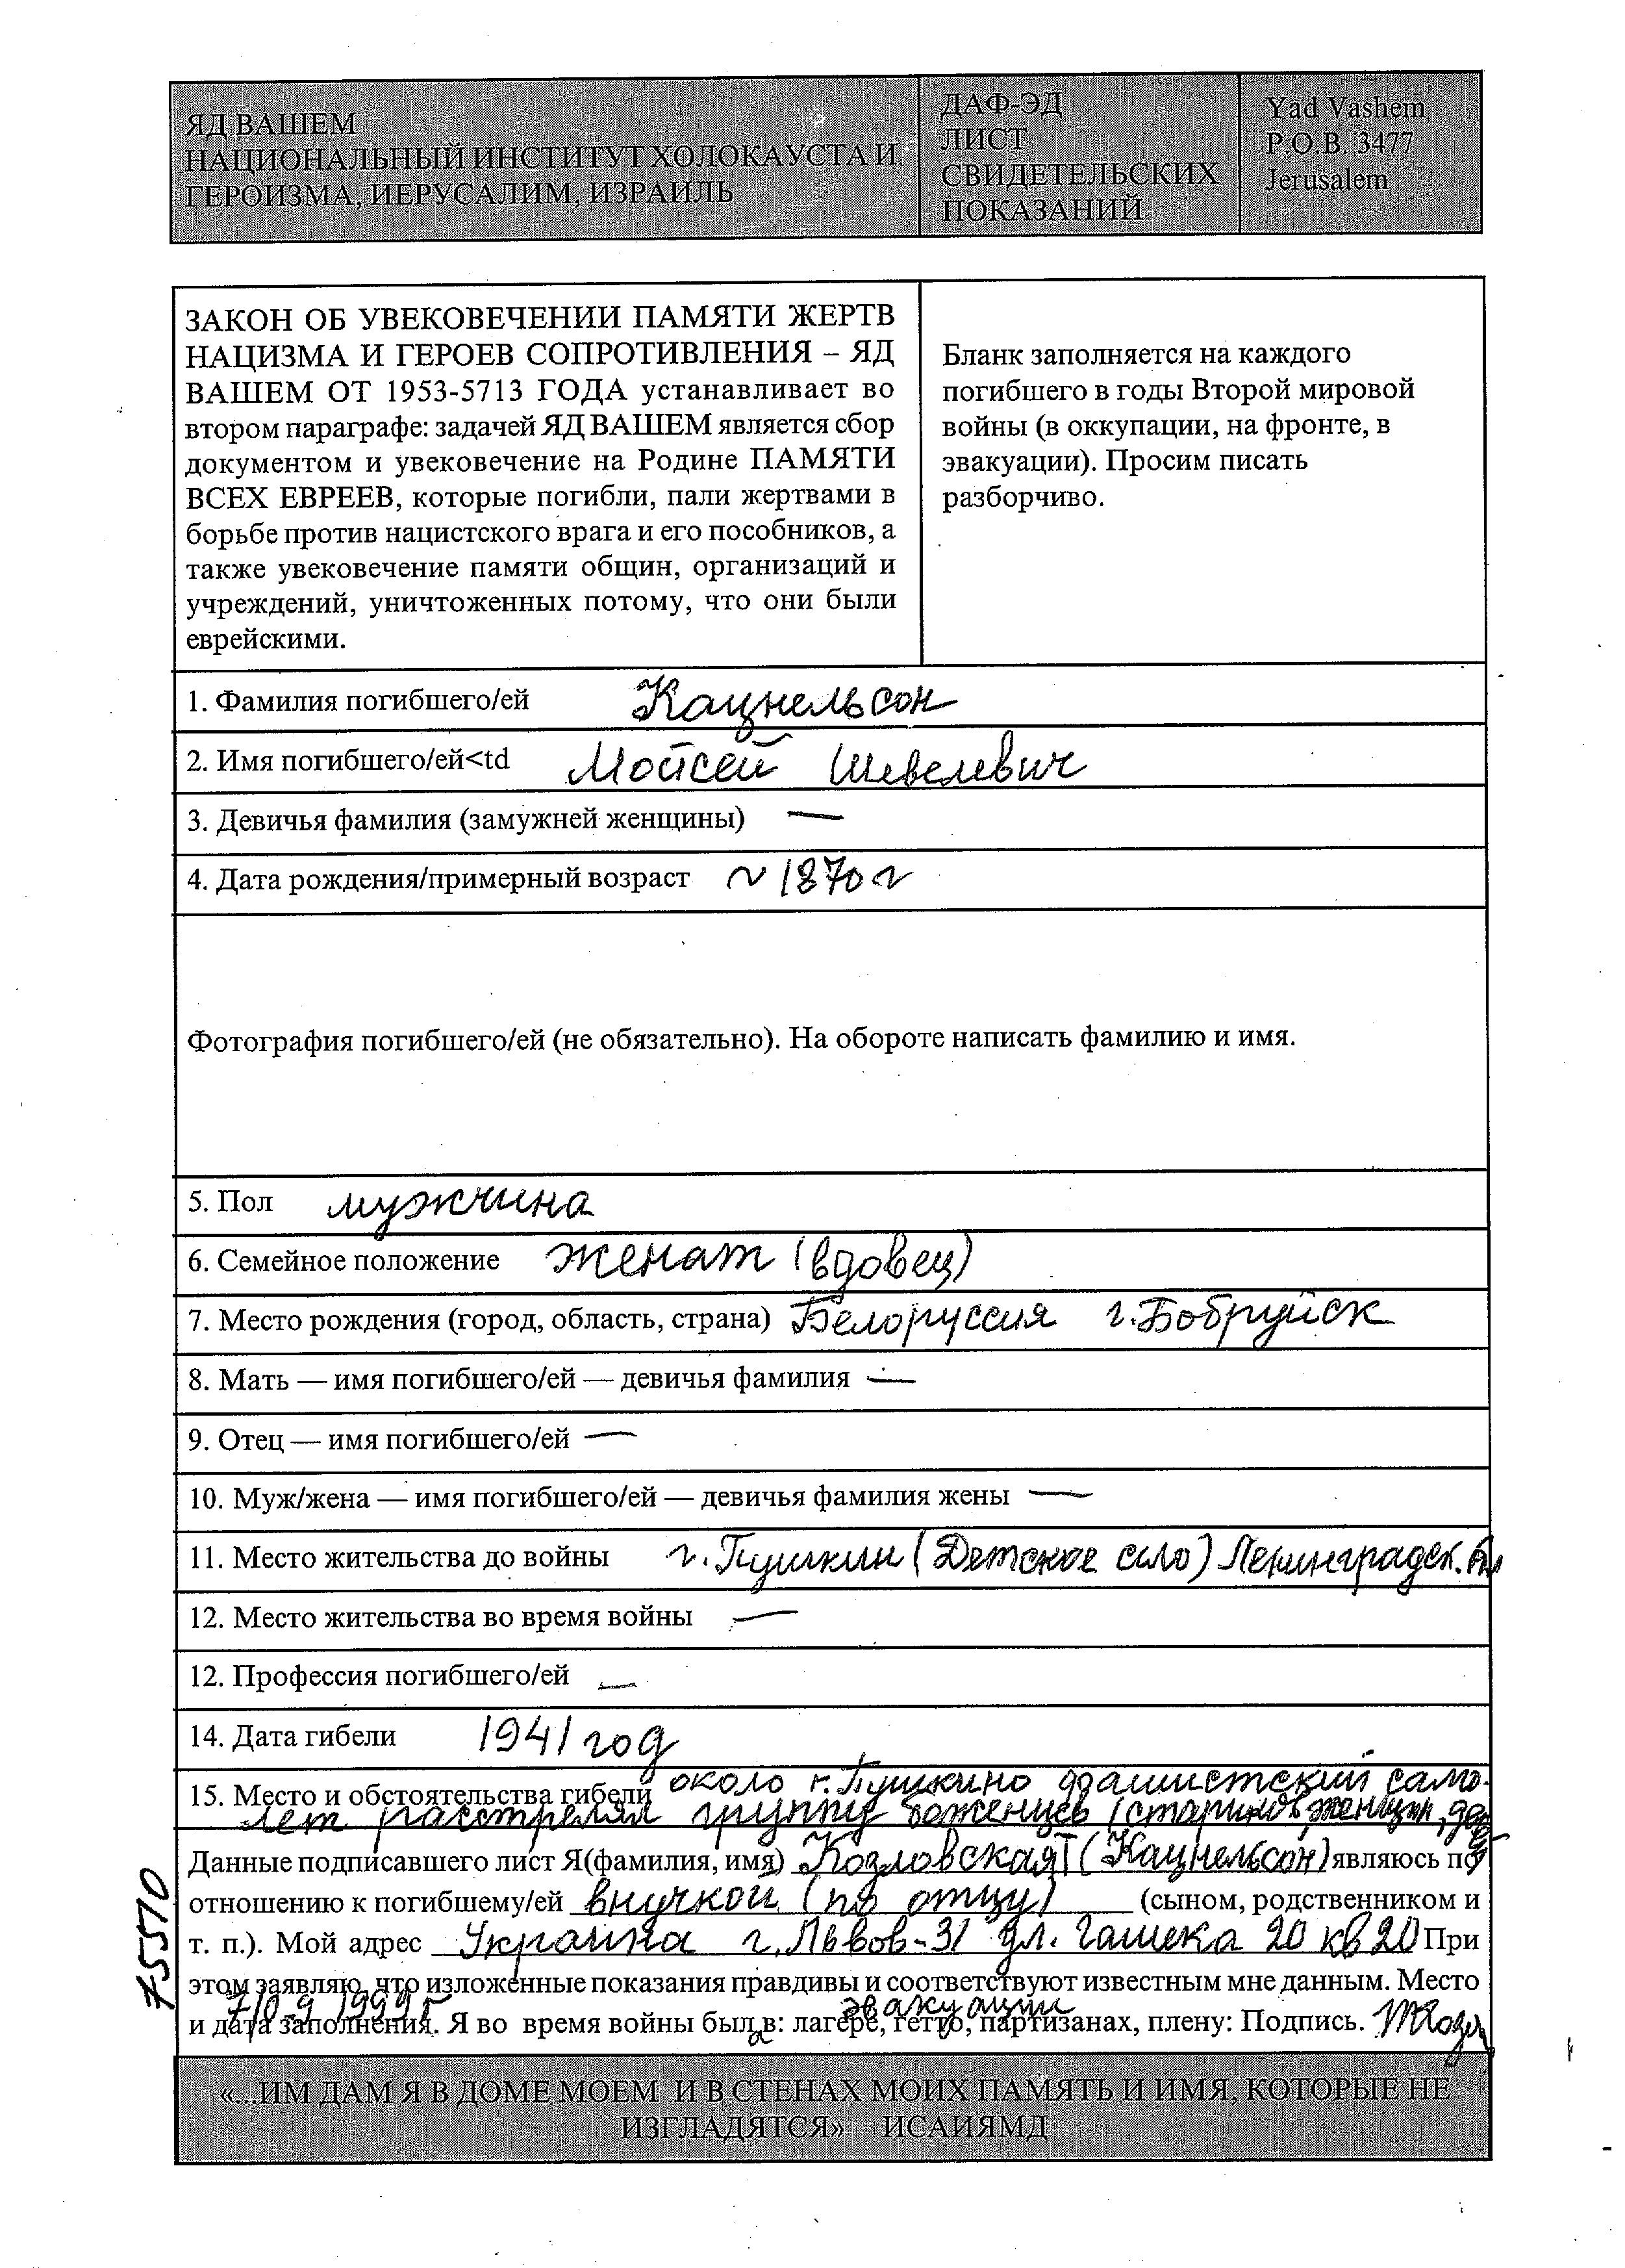 ЯД ВАШЕМ
НАЦИОНАЛЬНЫЙ ИНСТИТУТ ХОЛОКАУСТА И
ГЕРОИЗМА, ИЕРУСАЛИМ, ИЗРАИЛЬ
ДАФ-ЭД
ЛИСТ
СВИДЕТЕЛЬСКИХ
ПОКАЗАНИЙ
Yad Vashem
P.O.B. 3477
Jerusalem
ЗАКОН ОБ УВЕКОВЕЧЕНИИ ПАМЯТИ ЖЕРТВ
НАЦИЗМА И ГЕРОЕВ СОПРОТИВЛЕНИЯ – ЯД
ВАШЕМ ОТ 1953-5713 ГОДА устанавливает во
втором параграфе: задачей ЯД ВАШЕМ является сбор
документом и увековечение на Родине ПАМЯТИ
ВСЕХ ЕВРЕЕВ, которые погибли, пали жертвами в
борьбе против нацистского врага и его пособников, а
также увековечение памяти общин, организаций и
учреждений, уничтоженных потому, что они были
еврейскими.
Бланк заполняется на каждого
погибшего в годы Второй мировой
войны (в оккупации, на фронте, в
эвакуации). Просим писать
разборчиво.
1. Фамилия погибшего/ей Кацнельсон
2. Имя погибшего/ей<td Мойсей Шевелевич
3. Девичья фамилия (замужней женщины) —
4. Дата рождения/примерный возраст ~ 1870 г
Фотография погибшего/ей (не обязательно). На обороте написать фамилию и имя.
5. Пол мужчина
6. Семейное положение женат (вдовец)
7. Место рождения (город, область, страна) Белоруссия г. Бобруйск
8. Мать — имя погибшего/ей — девичья фамилия —
9. Отец — имя погибшего/ей —
10. Муж/жена — имя погибшего/ей — девичья фамилия жены —
11. Место жительства до войны г. Пушкин (Детское село) Ленинградск.
12. Место жительства во время войны —
12. Профессия погибшего/ей —
14. Дата гибели 1941 год
15. Место и обстоятельства гибели около г. Пушкино фашистский само-
лет расстрелял группу беженцев (стариков, женщин,
Данные подписавшего лист Я(фамилия, имя) Козловская Т (Кацнельсон) являюсь по
отношению к погибшему/ей внучкой (по отцу) (сыном, родственником и
т. п.). Мой адрес Украина г. Львов-31 ул. Гашека 20 кв 20 При
этом заявляю, что изложенные показания правдивы и соответствуют известным мне данным. Место
1999г эвакуации
и дата заполнения. Я во время войны был а в: лагере, гетто, партизанах, плену: Подпись.
«...ИМ ДАМ Я В ДОМЕ МОЕМ И В СТЕНАХ МОИХ ПАМЯТЬ И ИМЯ, КОТОРЫЕ НЕ
ИЗГЛАДЯТСЯ» ИСАИЯМД
75570